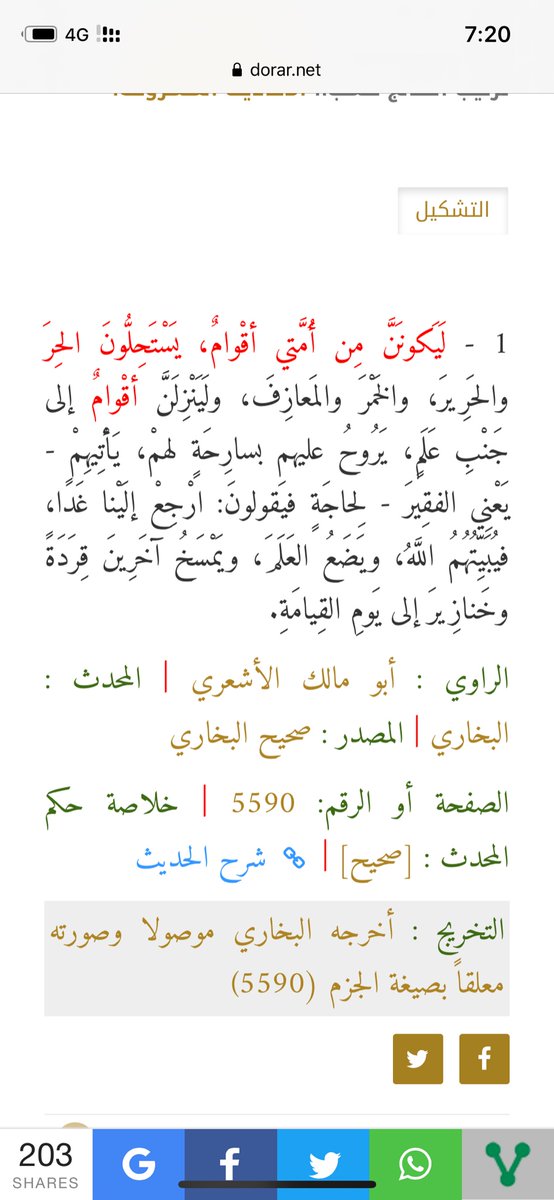 4G
7:20
dorar.net
التشكيل
1 - لَيَكونَنَّ مِن أُمَّتي أقْوامٌ، يَسْتَحِلُّونَ الحِرَ
والحَرِيرَ، والخَمْرَ والمَعازِفَ، ولَيَنْزِلَنَّ أقْوامٌ إلى
جَنْبِ عَلَمٍ، يَرُوحُ عليهم بسارِحَةٍ لهمْ، يَأْتِيهِمْ -
يَعْنِي الفقِيرَ - لِحاجَةٍ فيَقولونَ: ارْجِعْ إلَيْنا غَدًا،
فيُبَيِّتُهُمُ اللَّهُ، ويَضَعُ العَلَمَ، ويَمْسَخُ آخَرِينَ قِرَدَةً
وخَنازِيرَ إلى يَومِ القِيامَةِ.
الراوي : أبو مالك الأشعري | المحدث :
البخاري | المصدر : صحيح البخاري
الصفحة أو الرقم: 5590 | خلاصة حكم
المحدث : [صحيح] | شرح الحديث
التخريج : أخرجه البخاري موصولا وصورته
معلقاً بصيغة الجزم (5590)
203
SHARES